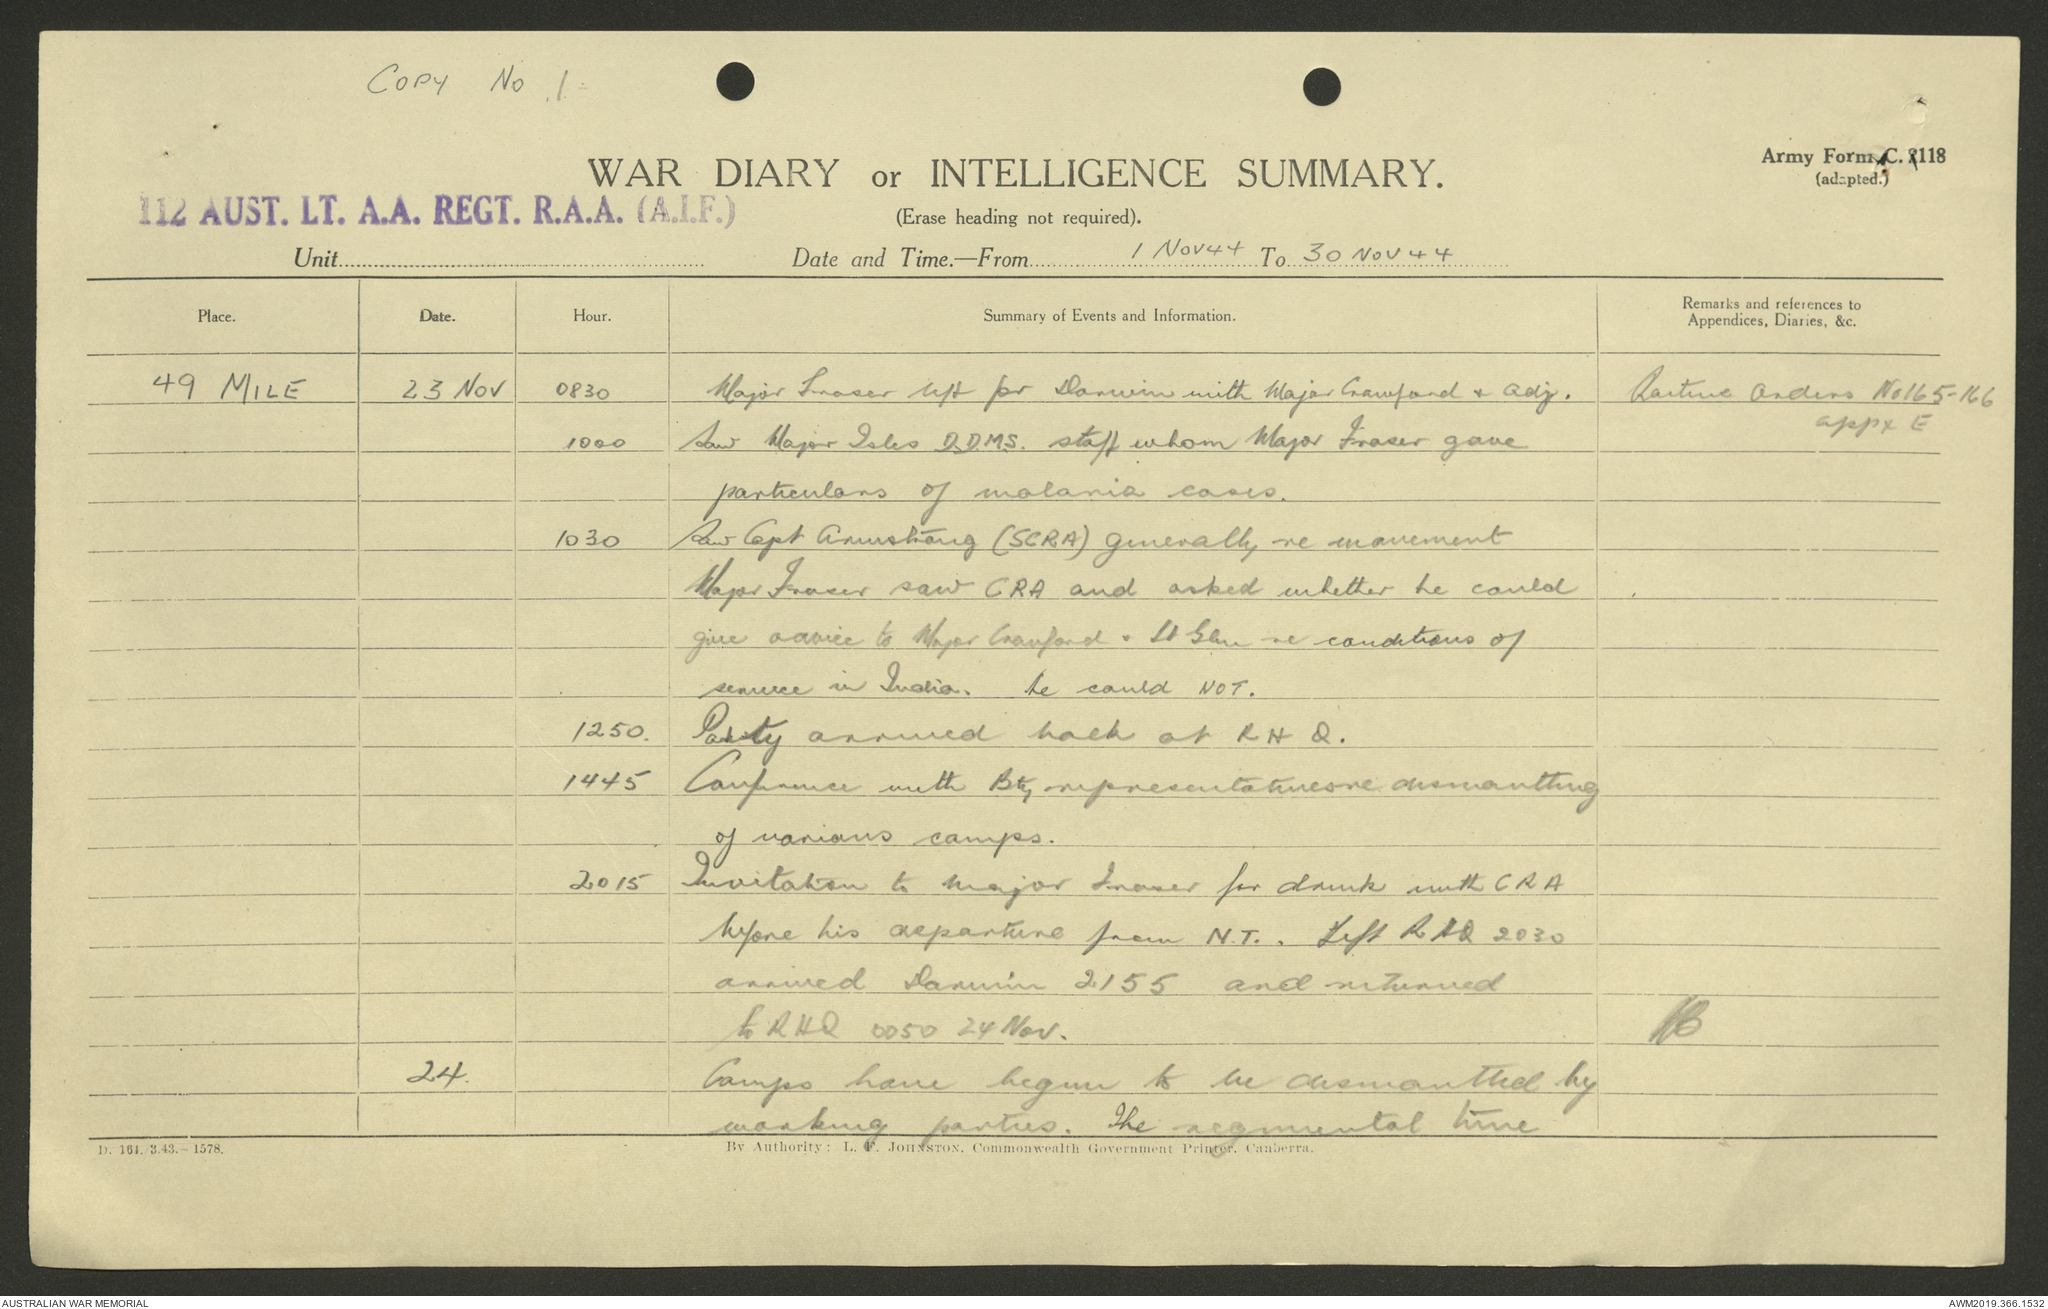 COPY NO 1
WAR DIARY or INTELLIGENCE SUMMARY.
Army Form C. 2118
(adapted.)
112 AUST. LT. A.A. REGT. R.A.A. (A.I.F.)
(Erase heading not required).
Unit
Date and Time.—From 1 Nov 44 To 30 NOV 44
Place. Date. Hour. Summary of Events and Information. Remarks and references to
Appendices, Diaries, &c.
49 MILE 23 Nov 0830 Major Fraser left for Darwin with Major Crawford + Adj. Routine Orders No 165-166
appx E
1000 Saw Major Isles D.D.M.S. staff whom Major Fraser gave
particulars of malaria cases.
1030 Saw Capt Armstrong (SCRA) generally re movement
Major Fraser saw CRA and asked whether he could
give advice to Major Crawford + Lt re conditions of
service in India. he could NOT.
1250. Party arrived back at R H Q.
1445 Conference with Bty representatives re dismantling
of various camps.
2015 Invitation to Major Fraser for drink with CRA
before his departure from N.T.. Left RHQ 2030
arrived Darwin 2155 and returned
to RHQ 0050 24 Nov.
24. Camps have begun to be dismantled by
working parties. The regimental time
D. 161/3.43.—1578.
By Authority: L. F. JOHNSTON, Commonwealth Government Printer, Canberra.
AUSTRALIAN WAR MEMORIAL
AWM2019.366.1532